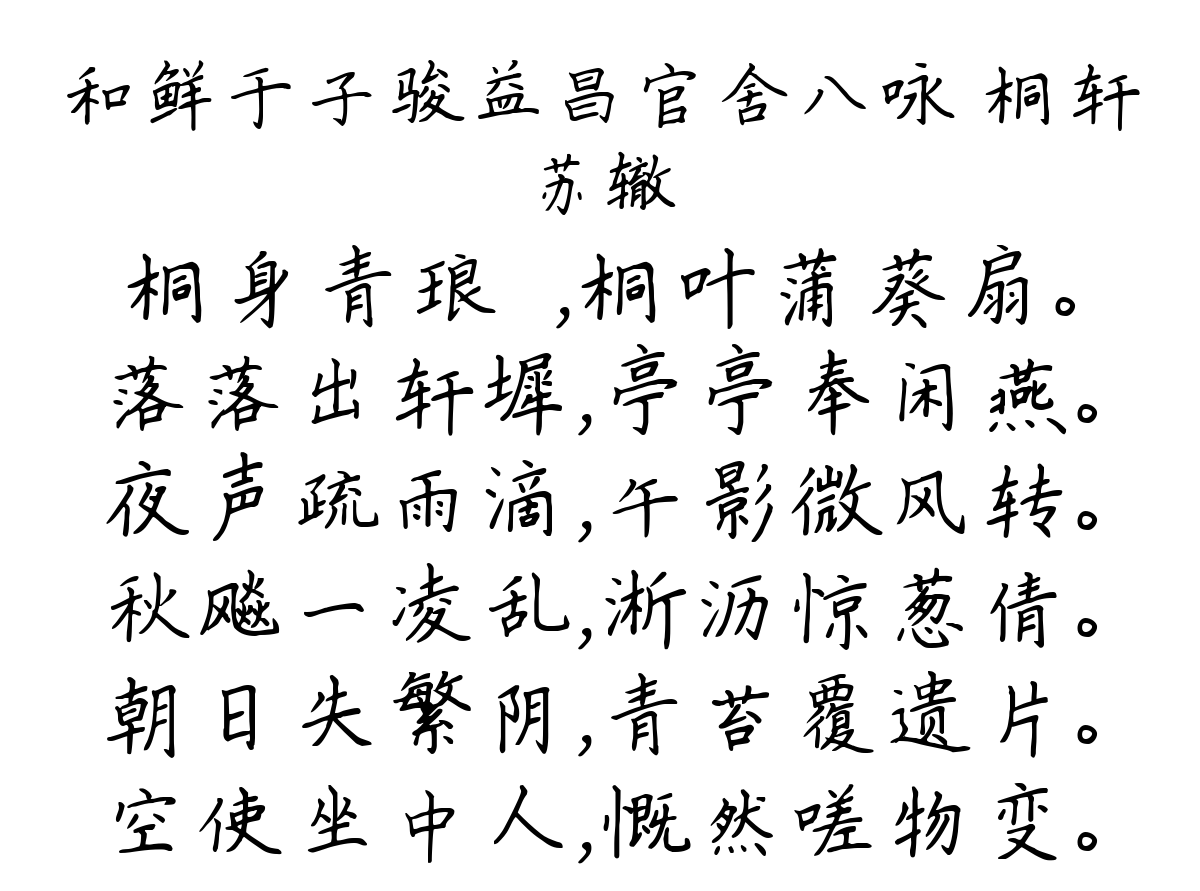 和鲜于子骏益昌官舍八咏 桐轩
苏辙
桐身青琅 ,桐叶蒲葵扇。
落落出轩墀,亭亭奉闲燕。
夜声疏雨滴,午影微风转。
秋飚一凌乱,淅沥惊葱倩。
朝日失繁阴,青苔覆遗片。
空使坐中人,慨然嗟物变。